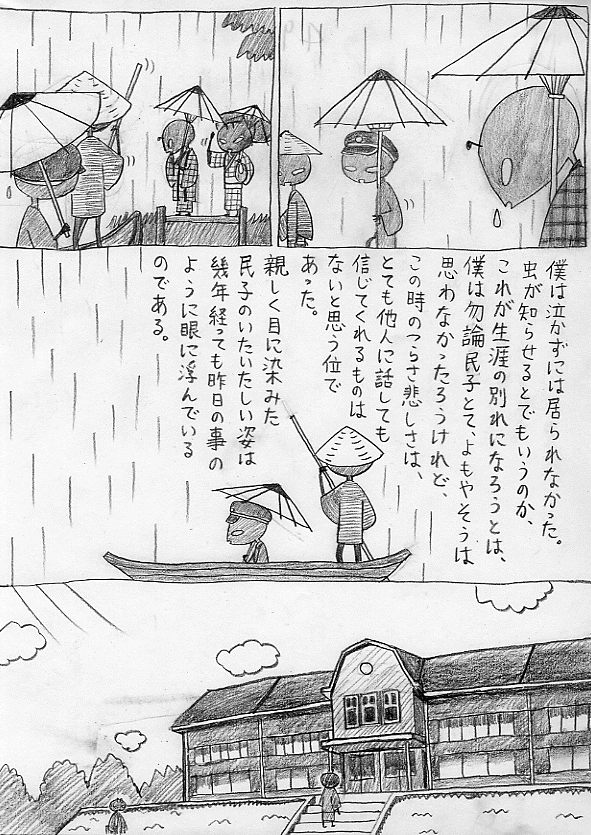 僕は泣かずには居られなかった。
虫が知らせるとでもいうのか、
これが生涯の別れになろうとは、
僕は勿論民子とて、よもやそうは
思わなかったろうけれど、
この時のつらさ悲しさは、
とても他人に話しても
信じてくれるものは
ないと思う位で
あった。
親しく目に染みた
民子のいたいたしい姿は
幾年経っても昨日の事の
ように眼に浮んでいる
のである。